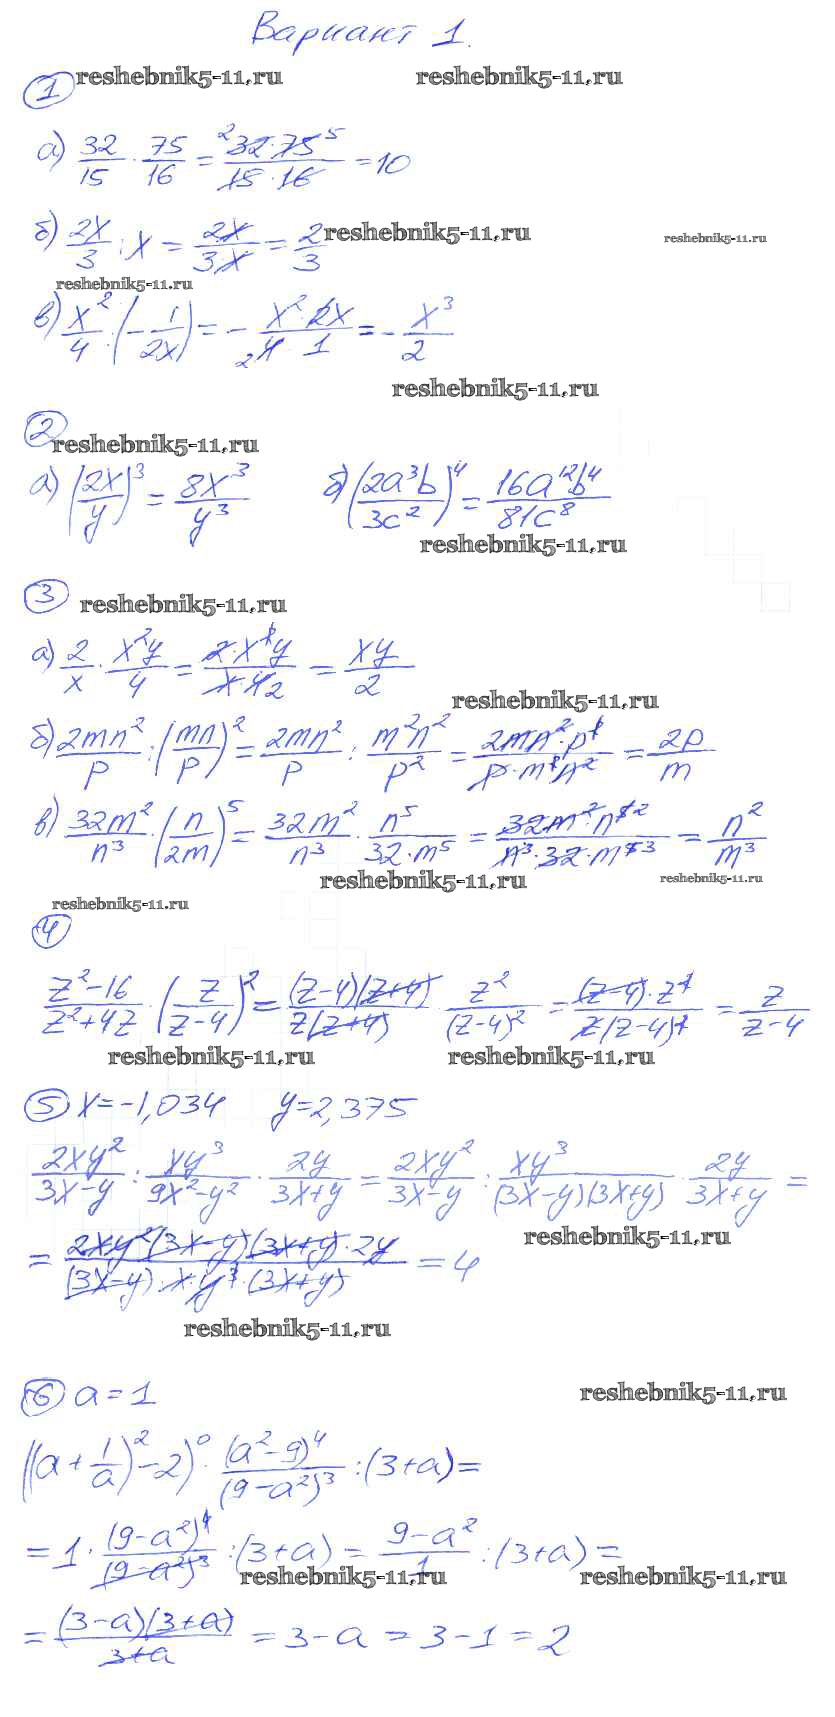 Вариант 1.
reshebnik5-11.ru reshebnik5-11.ru
①
а) 32/15 · 75/16 = ²32·75⁵/15·16 = 10
б) 2x/3 : x = 2x/3x = 2/3
reshebnik5-11.ru reshebnik5-11.ru
reshebnik5-11.ru
в) x²/4 : (-1/2x) = - x²·2x/₂4·1 = - x³/2
reshebnik5-11.ru
②
reshebnik5-11.ru
а) (2x/y)³ = 8x³/y³ б) (2a³b/3c²)⁴ = 16a¹²b⁴/81c⁸
reshebnik5-11.ru
③ reshebnik5-11.ru
а) 2/x · x²y/4 = 2·x²y/x·4₂ = xy/2
reshebnik5-11.ru
б) 2mn²/p : (mn/p)² = 2mn²/p : m²n²/p² = 2mn²·p²/p·m²n² = 2p/m
в) 32m²/n³ · (n/2m)⁵ = 32m²/n³ · n⁵/32·m⁵ = 32m²·n⁵²/n³·32·m⁵³ = n²/m³
reshebnik5-11.ru reshebnik5-11.ru
reshebnik5-11.ru
④
z²-16/z²+4z · (z/z-4)² = (z-4)(z+4)/z(z+4) · z²/(z-4)² = (z-4)·z²/z(z-4)² = z/z-4
reshebnik5-11.ru reshebnik5-11.ru
⑤ x=-1,034 y=2,375
2xy²/3x-y : xy³/9x²-y² · 2y/3x+y = 2xy²/3x-y : xy³/(3x-y)(3x+y) · 2y/3x+y =
reshebnik5-11.ru
= 2xy²(3x-y)(3x+y)·2y/(3x-y)·x·y³·(3x+y) = 4
reshebnik5-11.ru
⑥ a=1
reshebnik5-11.ru
((a+1/a)²-2)⁰ · (a²-9)⁴/(9-a²)³ : (3+a) =
= 1 · (9-a²)⁴/(9-a²)³ : (3+a) = 9-a²/1 : (3+a) =
reshebnik5-11.ru reshebnik5-11.ru
= (3-a)(3+a)/3+a = 3-a = 3-1 = 2